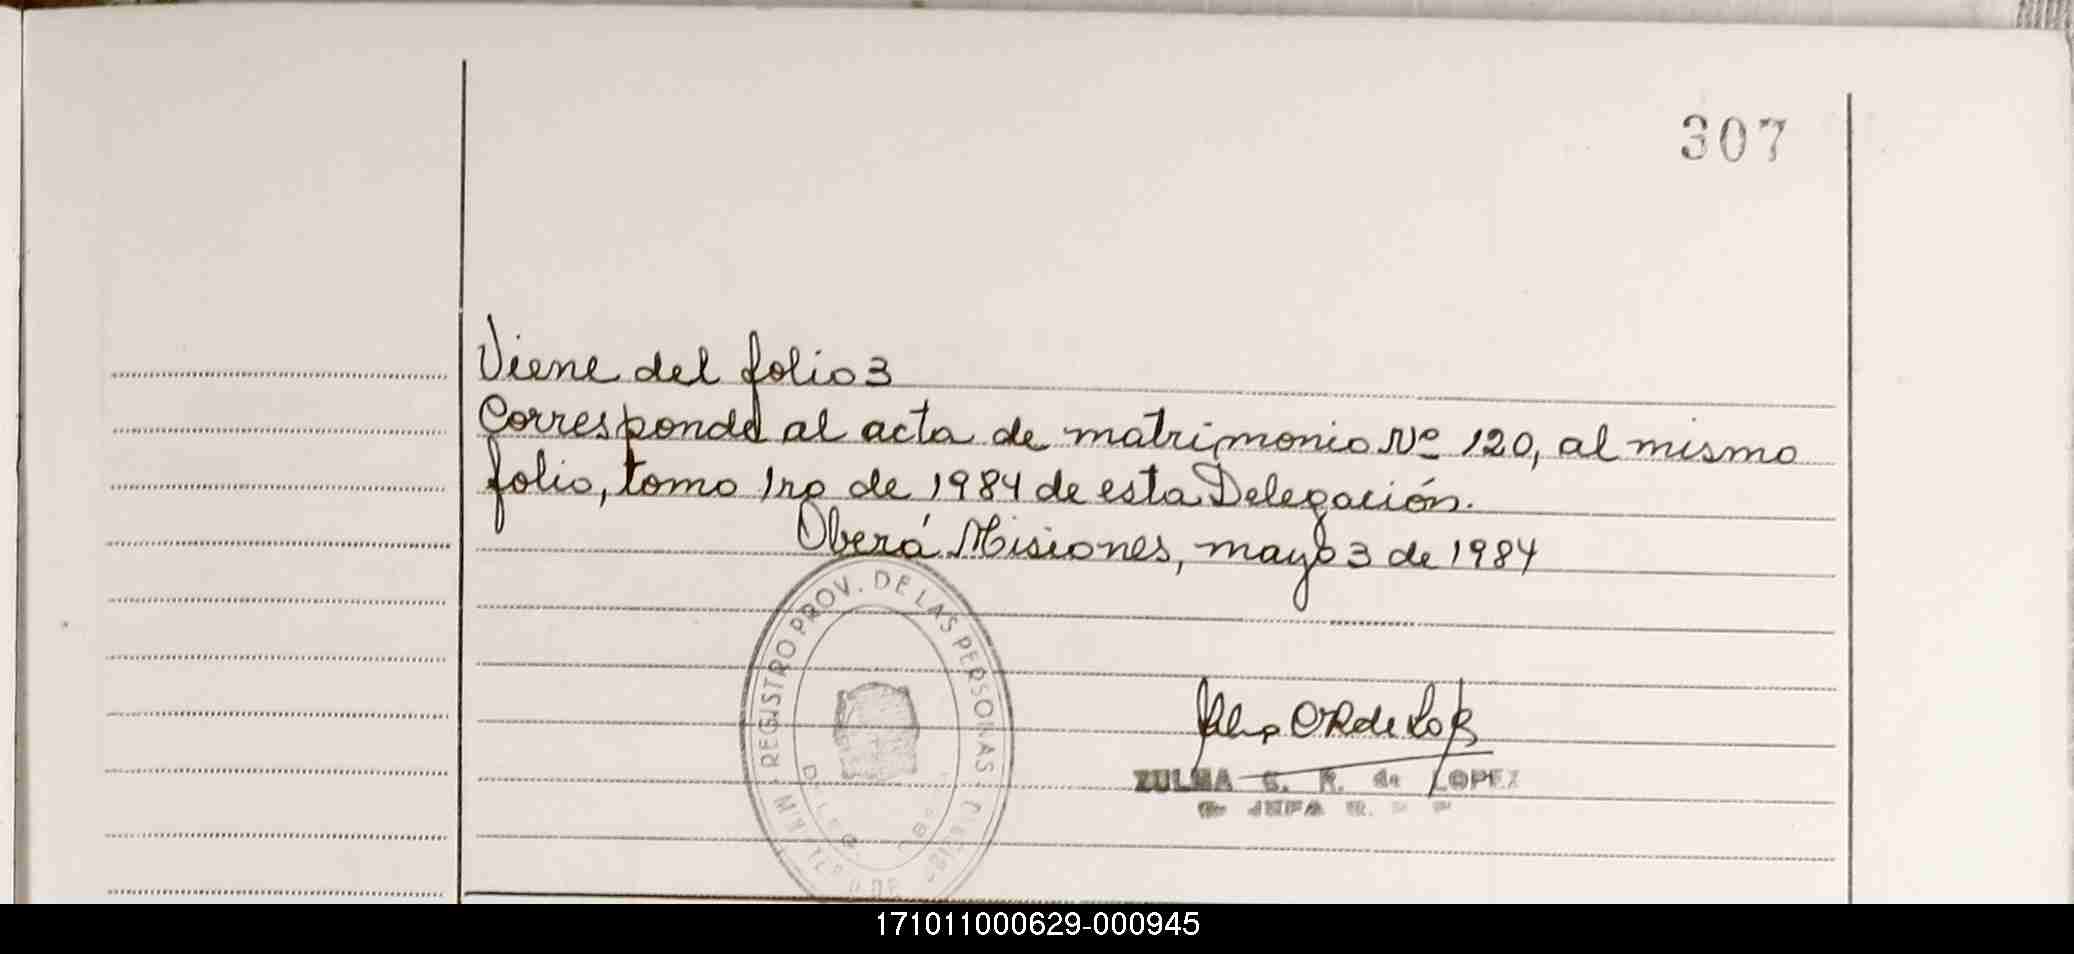 307
Viene del folio 3
Corresponde al acta de matrimonio Nº 120, al mismo
folio, tomo 1ro de 1984 de esta Delegación.
Oberá Misiones, mayo 3 de 1984
REGISTRO PROV. DE LAS PERSONAS
ZULMA C. R. de LOPEZ
JEFA R.
171011000629-000945